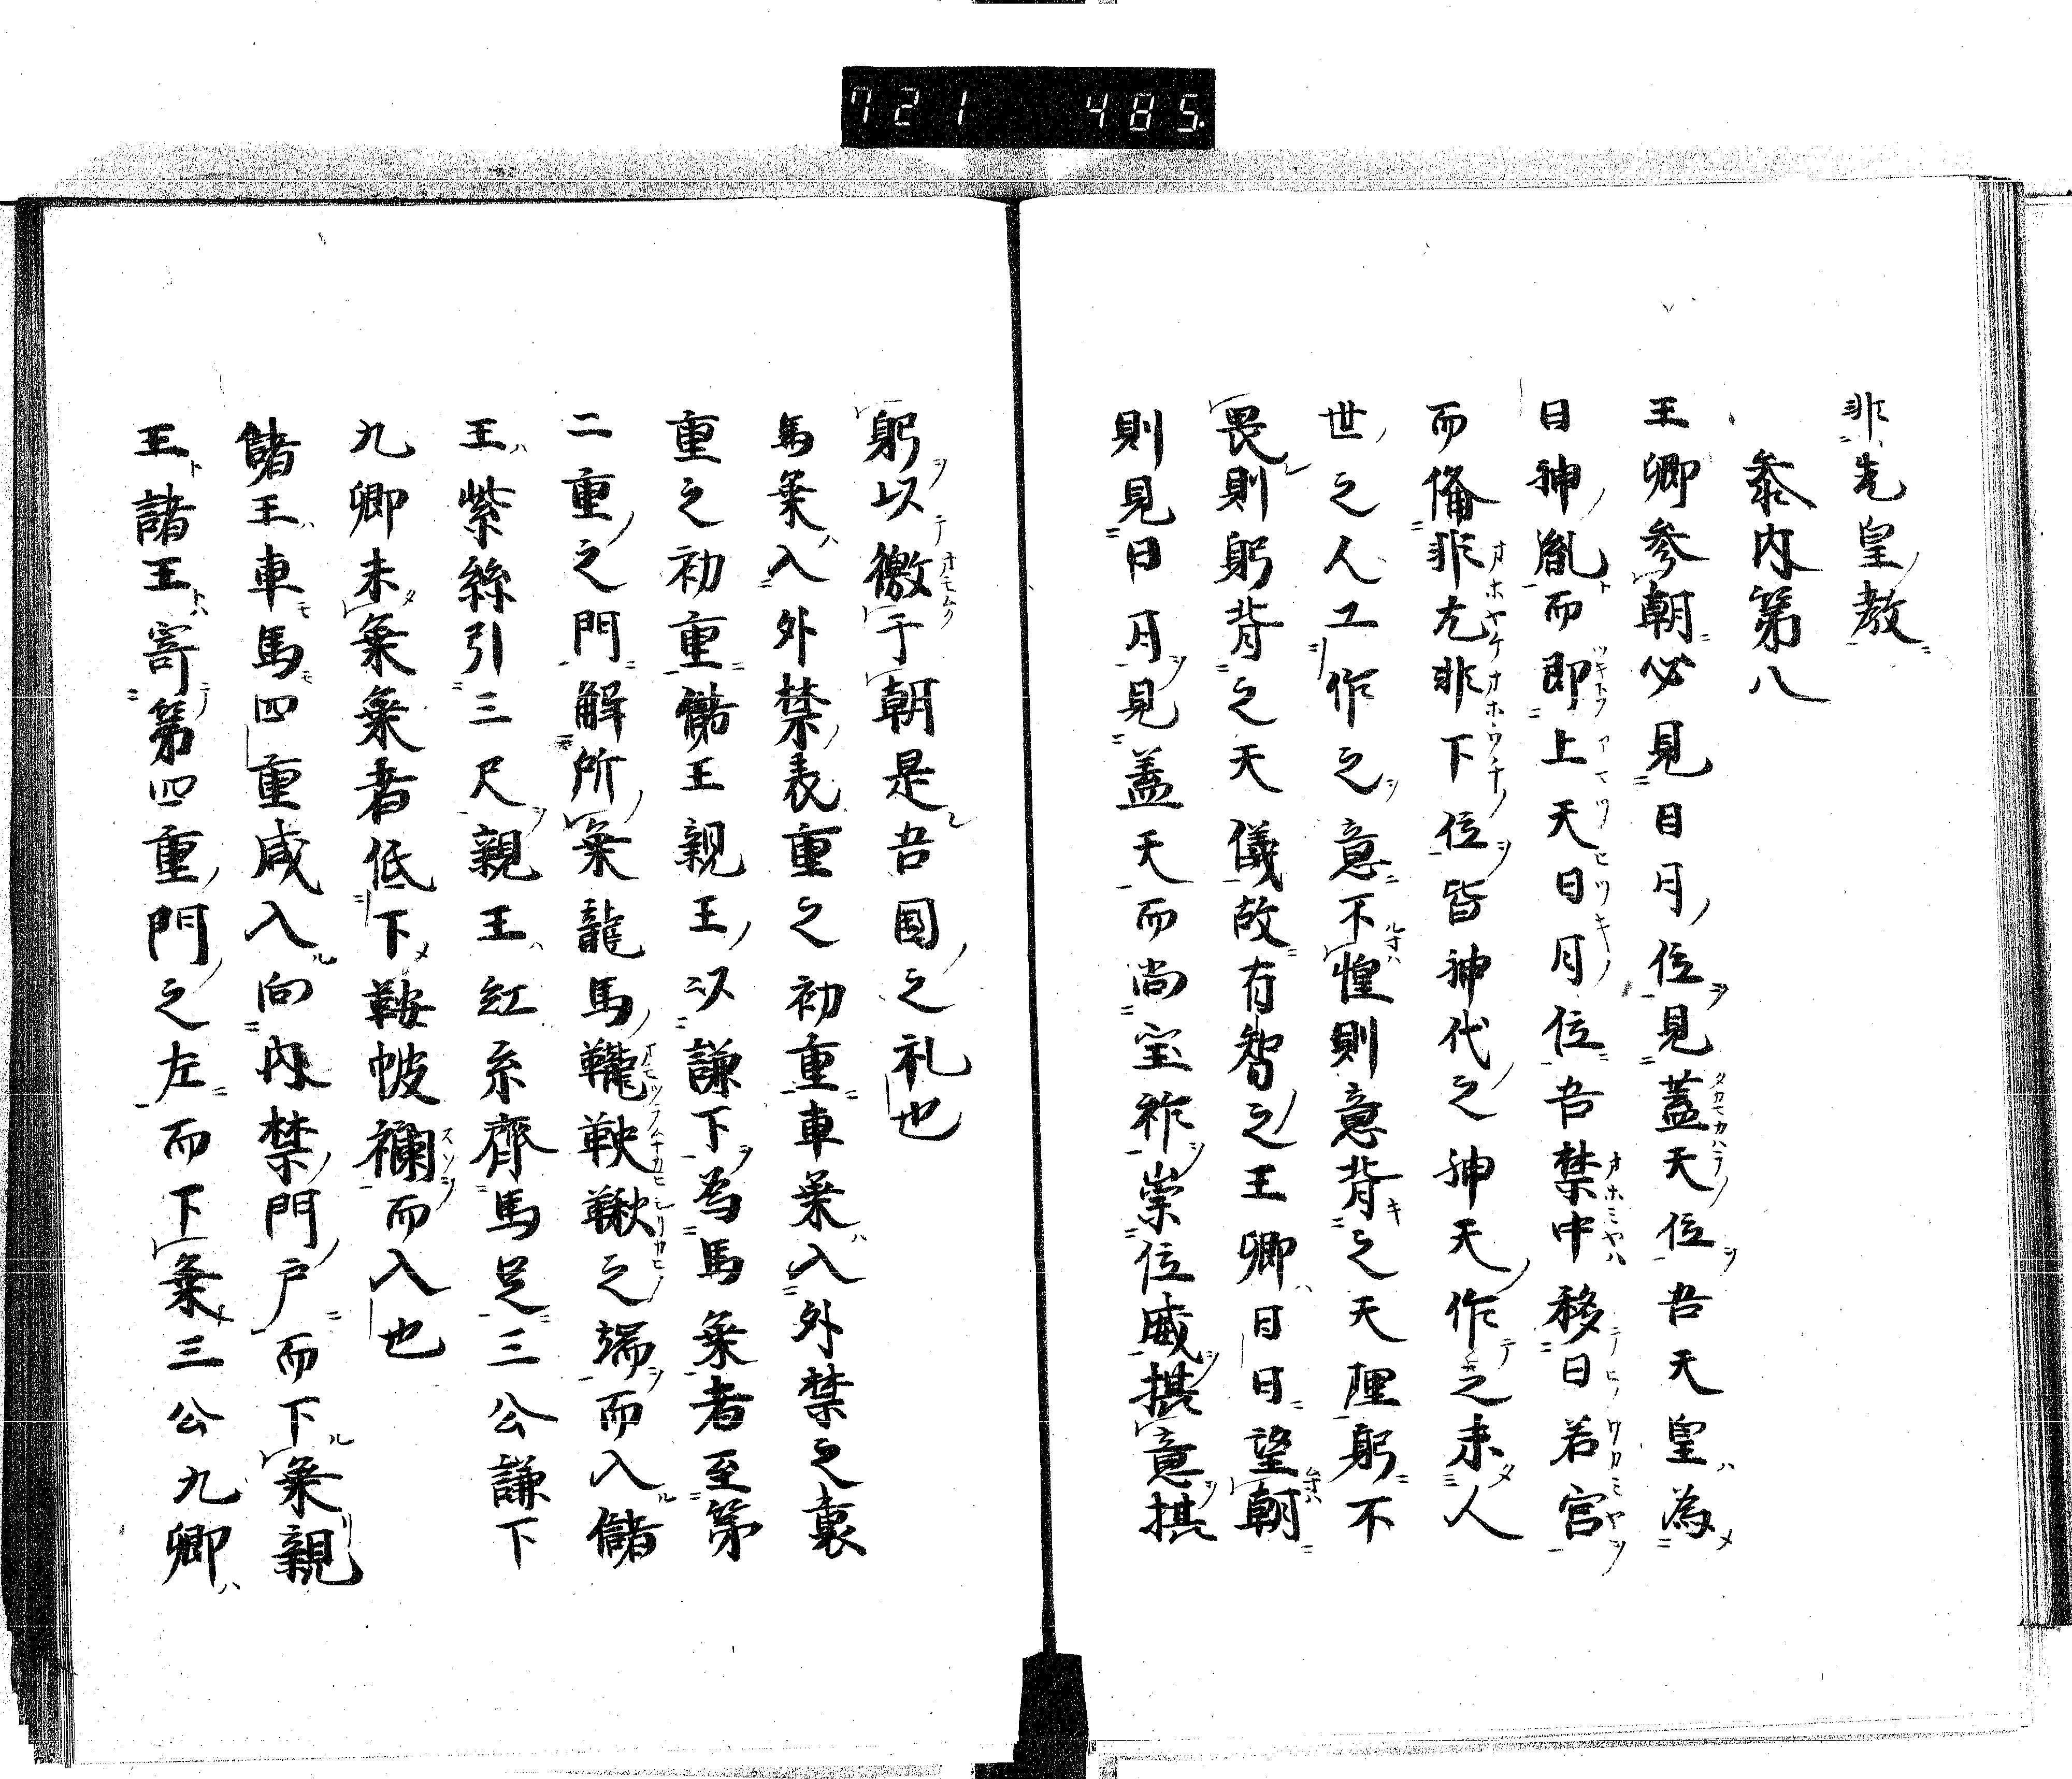 721 485.
非先皇教
叅内第八
王卿參朝必見日月位見蓋天位吾天皇為
日神胤而即上天日月位吾禁中移日若宮
而備非尢非下位皆神代之神天作之未人
世之人工作之意不惶則意背之天理躬不
畏則躬背之天儀故有智之王卿日日望朝
則見日月見蓋天而尚宝祚崇位威拱意拱
躬以徼于朝是吾国之礼也
馬乗入外禁表重之初重車乗入外禁之裏
重之初重儲王親王以謙下為馬乗者至第
二重之門解所乗龍馬鞚鞅鞦之端而入儲
王紫絲引三尺親王紅糸齊馬足三公謙下
九卿未乗乗者低下鞍帔襴而入也
儲王車馬四重咸入向内禁門戸而下乗親
王諸王寄第四重門之左而下乗三公九卿